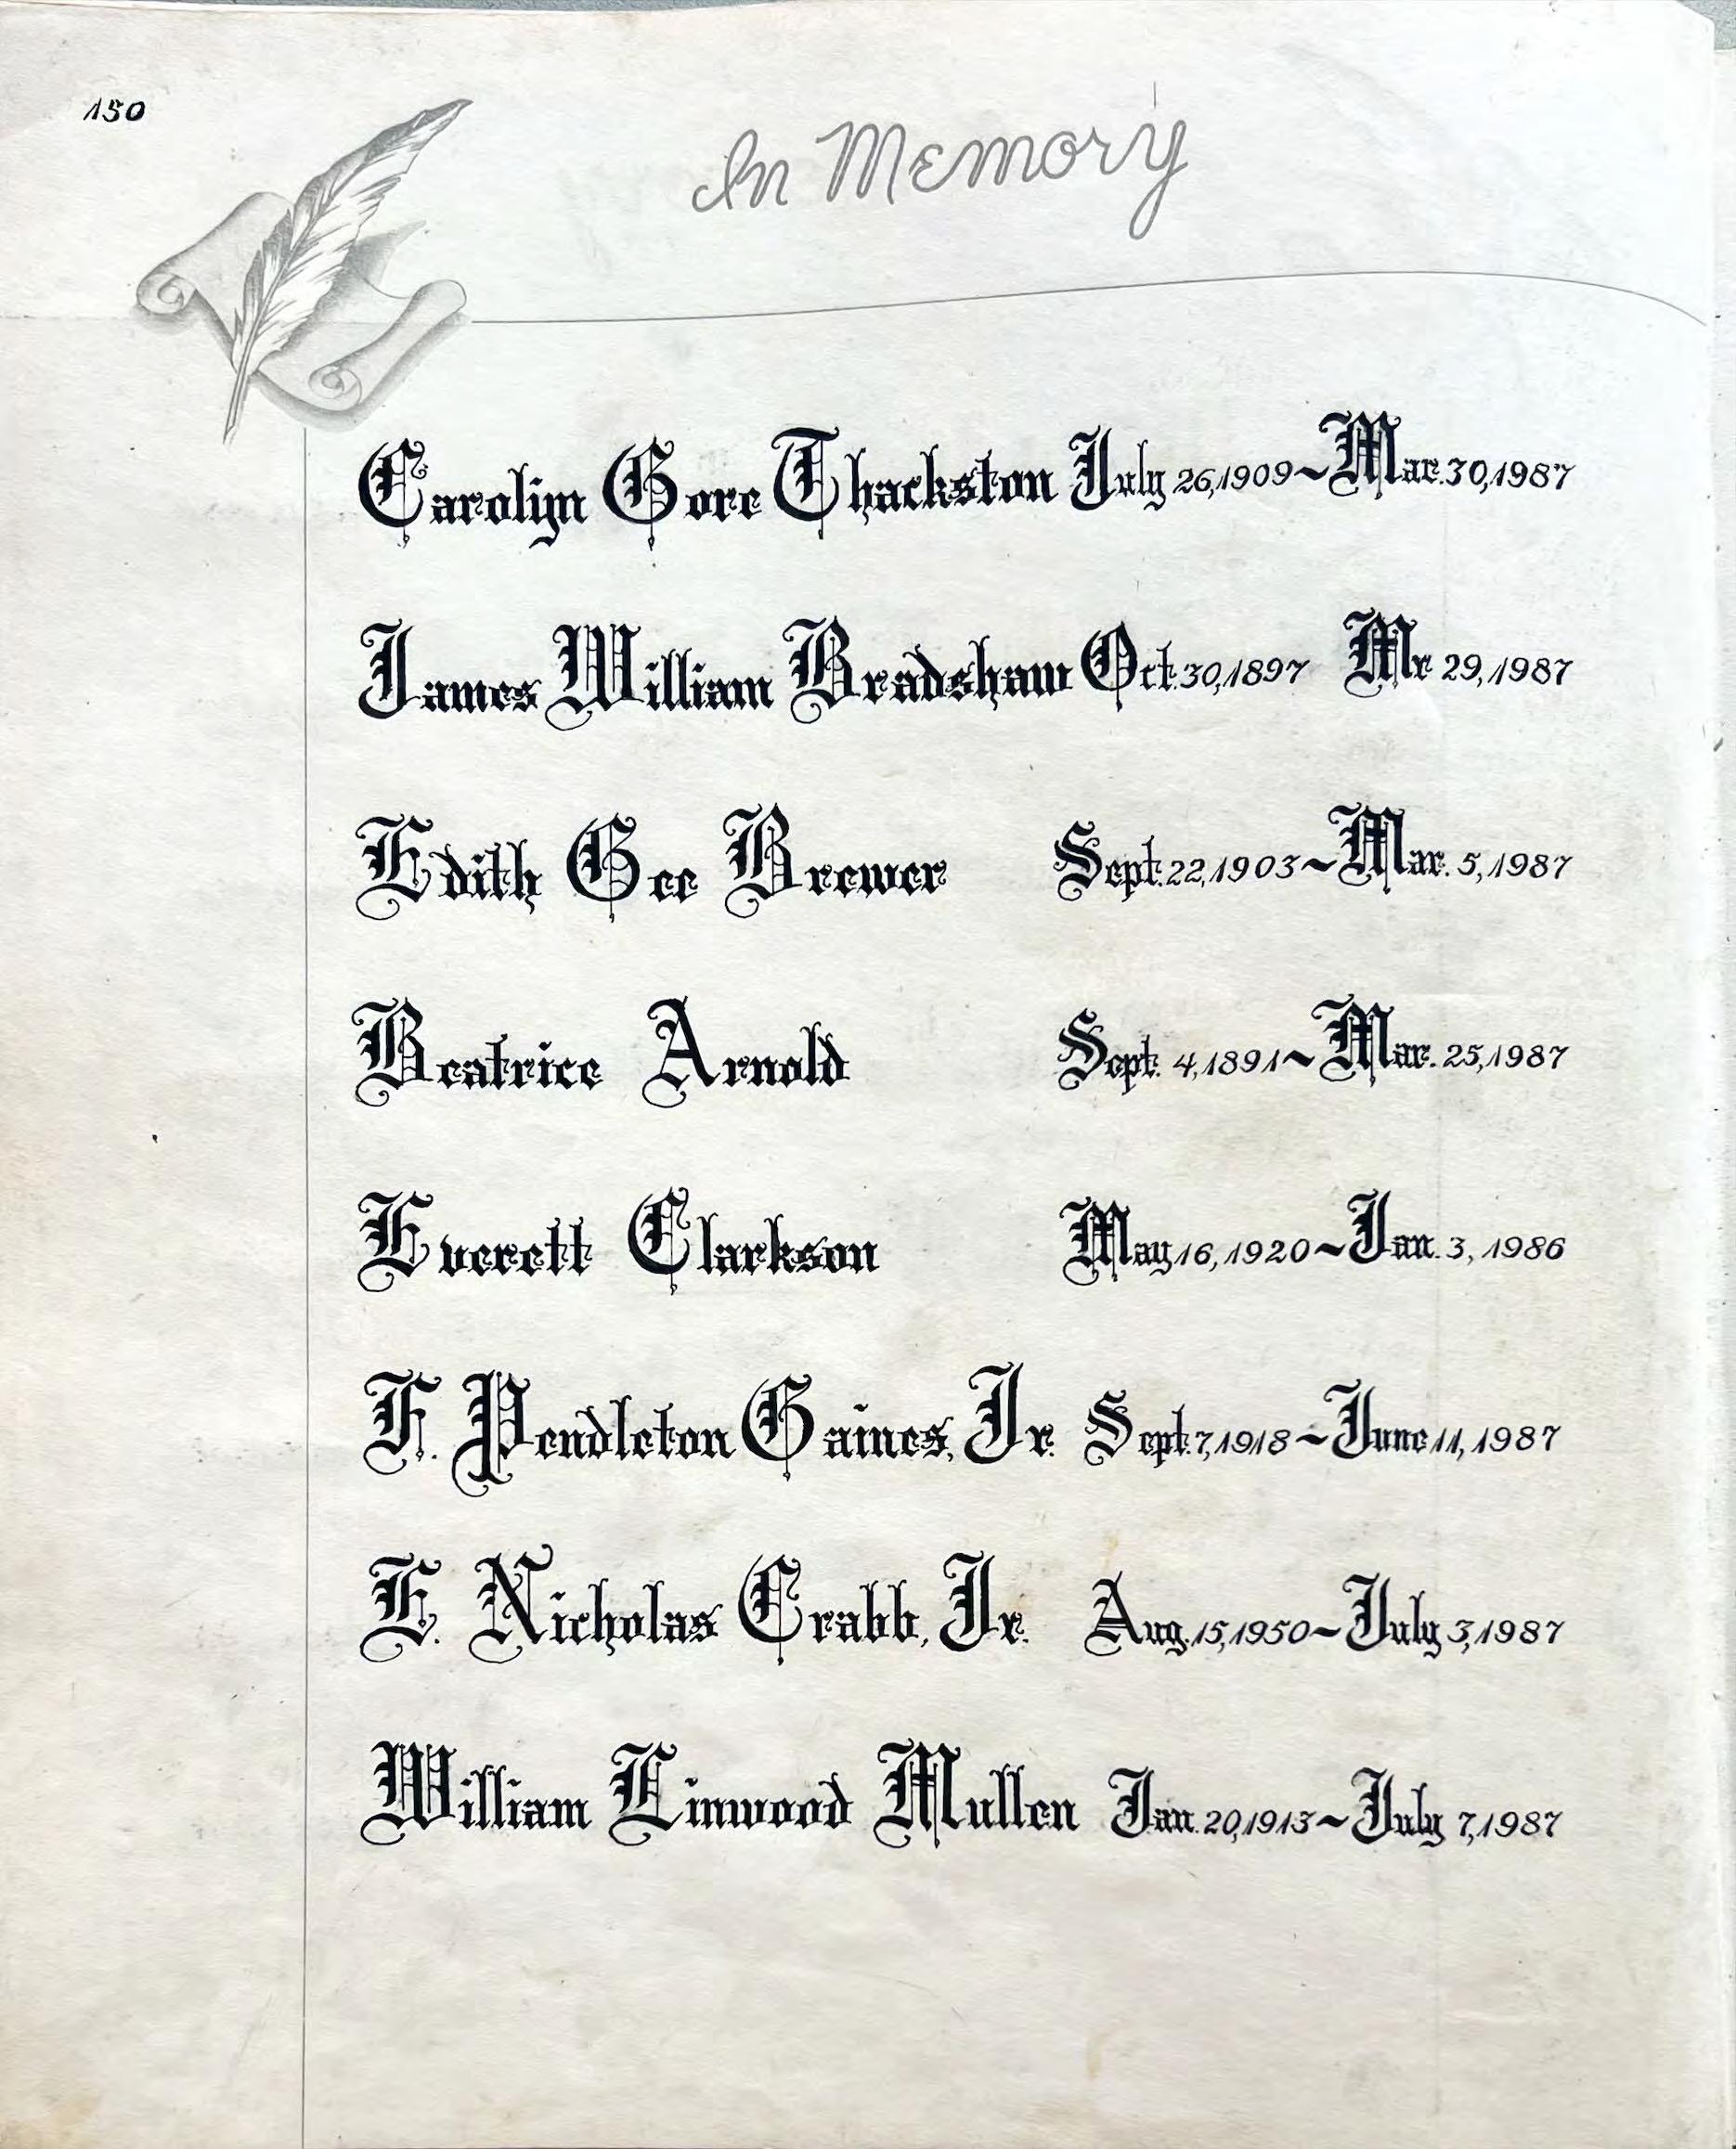 150
In Memory
Carolyn Gore Thackston July 26, 1909 ~ Mar. 30, 1987
James William Bradshaw Oct. 30, 1897 Mr 29, 1987
Edith Gee Brewer Sept. 22, 1903 ~ Mar. 5, 1987
Beatrice Arnold Sept. 4, 1891 ~ Mar. 25, 1987
Everett Clarkson May 16, 1920 ~ Jan. 3, 1986
F. Pendleton Gaines, Jr. Sept. 7, 1918 ~ June 11, 1987
E. Nicholas Crabb, Jr. Aug. 15, 1950 ~ July 3, 1987
William Linwood Mullen Jan. 20, 1913 ~ July 7, 1987